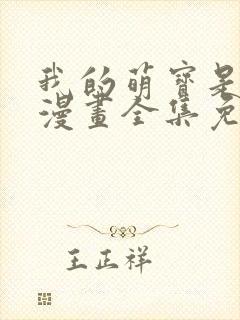 我的萌寶是
漫畫全集免
王正祥